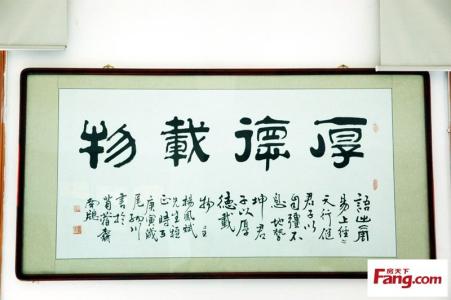 厚德載物
語出周
易上經
天行健
君子以
自彊不
息地勢
坤君
子以厚
德載
物
楊鳳斌
先生
正
庚寅歲
尾 川
書於
齋
房天下
Fang.com